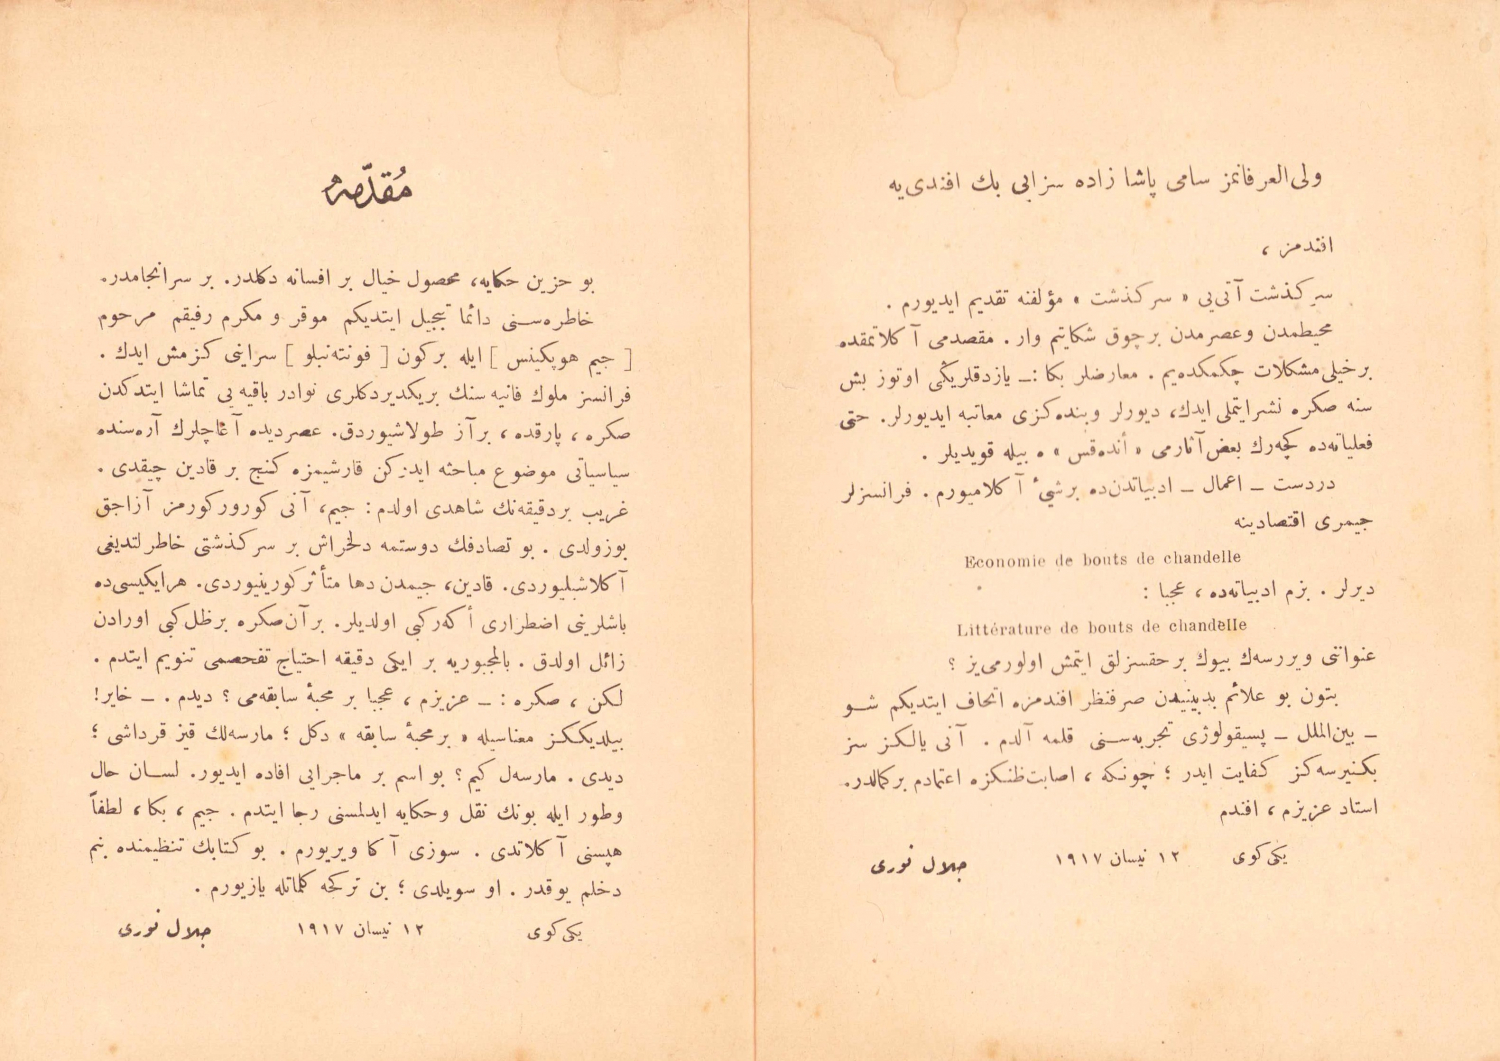 ولی‌العرفانمز سامی پاشا زاده سزایی بك افندی‌یه
افندمز ،
سرگذشت آتی‌یی « سرگذشت » مؤلفنه تقدیم ایدیورم .
محیطمدن وعصرمدن برچوق شكایتم وار . مقصدمی آكلاتمقده
برخیلی مشكلات چكمكده‌یم . معارضلر بكا :ـ یازدقلریكی اوتوز بش
سنه صكره نشر ایتملی ایدك، دیورلر وبنده‌كزی معاتبه ایدیورلر. حتی
فعلیاته‌ده كچه‌رك بعض آثارمی « أنده‌قس » ه بیله قویدیلر .
دردست ـ اعمال ـ ادبیاتدن‌ده برشیٔ آكلامیورم . فرانسزلر
جیمری اقتصادینه
Economie de bouts de chandelle
دیرلر . بزم ادبیاته‌ده ، عجبا :
Littérature de bouts de chandelle
عنواننی ویررسه‌ك بیوك برحقسزلق ایتمش اولورمی‌یز ؟
بتون بو علائم بدبینیدن صرفنظر افندمزه اتحاف ایتدیكم شو
ـ بین‌الملل ـ پسیقولوژی تجربه‌سنی قلمه آلدم . آنی یالكز سز
بكنیرسه‌كز كفایت ایدر ؛ چونكه ، اصابت‌ظنكزه اعتمادم بركمالدر.
استاد عزیزم ، افندم
یكی كوی ١٢ نیسان ١٩١٧ جلال نوری
مُقدّمه
بو حزین حكایه، محصول خیال بر افسانه دكلدر. بر سرانجامدر.
خاطره‌سنی دائما تبجیل ایتدیكم موقر و مكرم رفیقم مرحوم
[ جیم هوپكینس ] ایله بركون [ فونته‌نبلو ] سراینی كزمش ایدك .
فرانسز ملوك فانیه سنك بریكدیردكلری نوادر باقیه یی تماشا ایتدكدن
صكره ، پارقده ، برآز طولاشیوردق. عصردیده آغاچلرك آره‌سنده
سیاسیاتی موضوع مباحثه ایدركن قارشیمزه كنج بر قادین چیقدی .
غریب بردقیقه‌نك شاهدی اولدم : جیم، آنی كورور كورمز آزاجق
بوزولدی . بو تصادفك دوستمه دلخراش بر سركذشتی خاطرلتدیغی
آكلاشیلیوردی. قادین، جیمدن دها متأثر كورینیوردی. هرایكیسی‌ده
باشلرینی اضطراری أكه‌ركبی اولدیلر. برآن‌صكره برظل‌كبی اورادن
زائل اولدق . بالمجبوریه بر ایكی دقیقه احتیاج تفحصمی تنویم ایتدم .
لكن ، صكره : ـ عزیزم ، عجبا بر محبهٔ سابقه‌می ؟ دیدم . ـ خایر!
بیلدیككز معناسیله « برمحبهٔ سابقه » دكل ؛ مارسه‌لك قیز قرداشی ؛
دیدی . مارسه‌ل كیم ؟ بو اسم بر ماجرایی افاده ایدیور. لسان حال
وطور ایله بونك نقل وحكایه ایدلمسنی رجا ایتدم . جیم ، بكا ، لطفاً
هپسنی آكلاتدی . سوزی آكا ویریورم . بو كتابك تنظیمنده بنم
دخلم یوقدر . او سویلدی ؛ بن تركجه كلماتله یازیورم .
یكی كوی ١٢ نیسان ١٩١٧ جلال نوری